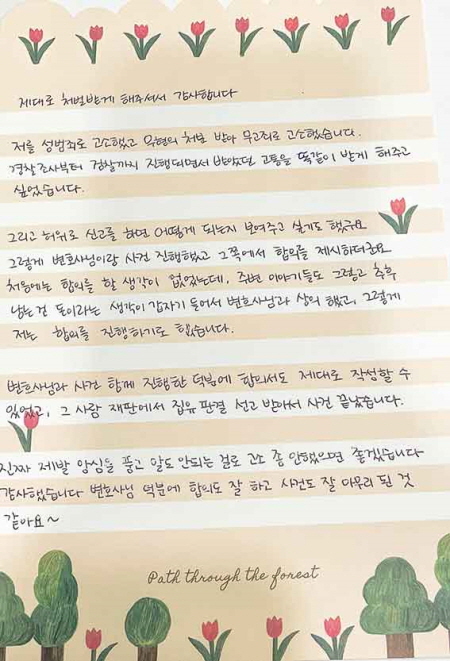 제대로 처벌받게 해주셔서 감사합니다
저를 성범죄로 고소했고 무혐의 처분 받아 무고죄로 고소했습니다.
경찰조사부터 검찰까지 진행되면서 받았던 고통을 똑같이 받게 해주고
싶었습니다.
그리고 허위로 신고를 하면 어떻게 되는지 보여주고 싶기도 했구요
그렇게 변호사님이랑 사건 진행했고 그쪽에서 합의를 제시하더군요
처음에는 합의를 할 생각이 없었는데, 주변 이야기들도 그렇고 추후
남는건 돈이라는 생각이 갑자기 들어서 변호사님과 상의 했고, 그렇게
저는 합의를 진행하기도 했습니다.
변호사님과 사건 함께 진행한 덕분에 합의서도 제대로 작성할 수
있었고, 그 사람 재판에서 집유 판결 선고 받아서 사건 끝났습니다.
진짜 제발 앙심을 품고 말도 안되는 걸로 고소 좀 안했으면 좋겠습니다
감사했습니다 변호사님 덕분에 합의도 잘 하고 사건도 잘 마무리 된 것
같아요~
Path through the forest